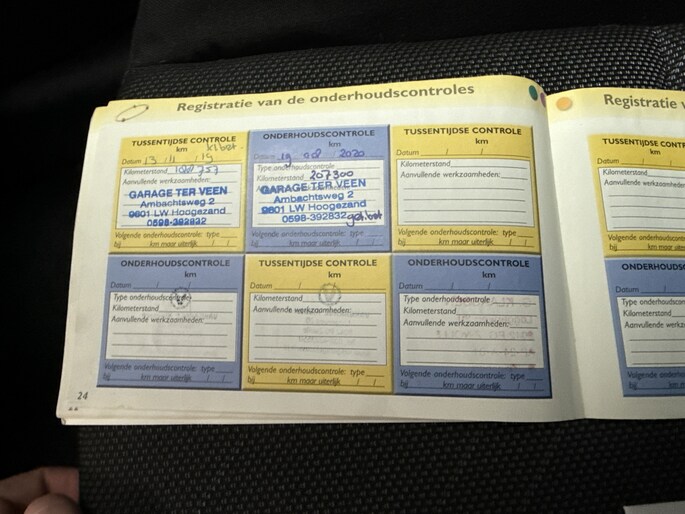 Registratie van de onderhoudscontroles
TUSSENTIJDSE CONTROLE
km
Datum 13 / 11 / 19
Kilometerstand
Aanvullende werkzaamheden:
GARAGE TER VEEN
Ambachtsweg 2
9601 LW Hoogezand
0598-392832
Volgende onderhoudscontrole: type
bij km maar uiterlijk / /
ONDERHOUDSCONTROLE
km
Datum 19 08 2020
Type onderhoudscontrole
Kilometerstand 207300
Aanvullende werkzaamheden:
GARAGE TER VEEN
Ambachtsweg 2
9601 LW Hoogezand
0598-392832
Volgende onderhoudscontrole: type
bij km maar uiterlijk / /
TUSSENTIJDSE CONTROLE
km
Datum / /
Kilometerstand
Aanvullende werkzaamheden:
Volgende onderhoudscontrole: type
bij km maar uiterlijk / /
ONDERHOUDSCONTROLE
km
Datum / /
Type onderhoudscontrole
Kilometerstand
Aanvullende werkzaamheden:
Volgende onderhoudscontrole: type
bij km maar uiterlijk / /
TUSSENTIJDSE CONTROLE
km
Datum / /
Kilometerstand
Aanvullende werkzaamheden:
Volgende onderhoudscontrole: type
bij km maar uiterlijk / /
ONDERHOUDSCONTROLE
km
Datum / /
Type onderhoudscontrole
Kilometerstand
Aanvullende werkzaamheden:
Volgende onderhoudscontrole: type
bij km maar uiterlijk / /
24
Registratie v
TUSSENT
Datum
Kilometerstand
Aanvullende werkz
Volgende onderh
bij
ONDERHOUDS
Datum
Type onderhoudsc
Kilometerstand
Aanvullende werkz
Volgende onderh
bij